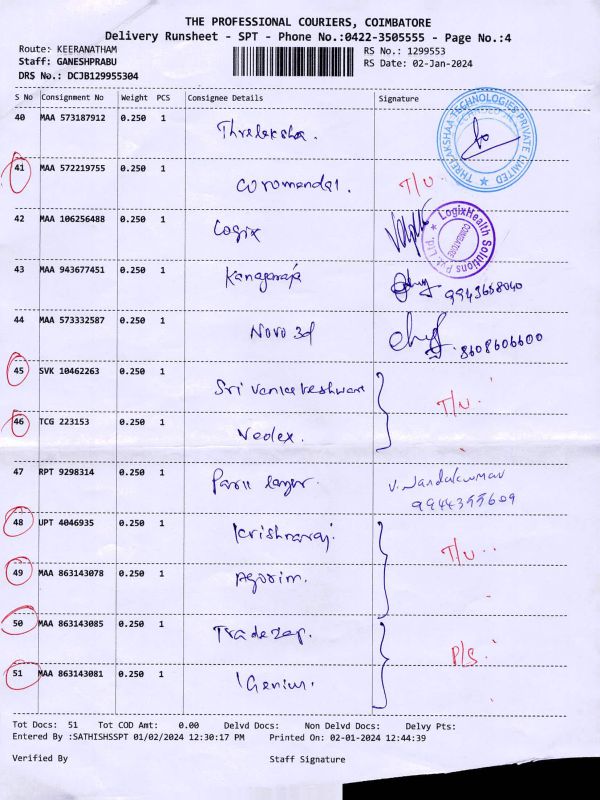 THE PROFESSIONAL COURIERS, COIMBATORE
Delivery Runsheet - SPT - Phone No.:0422-3505555 - Page No.:4
Route: KEERANATHAM RS No.: 1299553
Staff: GANESHPRABU RS Date: 02-Jan-2024
DRS No.: DCJB129955304
S No Consignment No Weight PCS Consignee Details Signature
40 MAA 573187912 0.250 1 Threlaksha.
THRELAKSHAA TECHNOLOGIES PRIVATE LIMITED
41 MAA 572219755 0.250 1 Coromandal. T/U.
42 MAA 106256488 0.250 1 Logix
LogixHealth Solutions Pvt. Ltd. COIMBATORE
43 MAA 943677451 0.250 1 Kanagaraja 9943658040
44 MAA 573332587 0.250 1 Novo 3d 8608606600
45 SVK 10462263 0.250 1 Sri T/U.
46 TCG 223153 0.250 1 Vedex.
47 RPT 9298314 0.250 1 V. Nandakumar
9944355609
48 UPT 4046935 0.250 1 Krishnaraj. T/U..
49 MAA 863143078 0.250 1 Agorim.
50 MAA 863143085 0.250 1 Tradezap. P/S.
51 MAA 863143081 0.250 1 iGenius.
Tot Docs: 51 Tot COD Amt: 0.00 Delvd Docs: Non Delvd Docs: Delvy Pts:
Entered By :SATHISHSSPT 01/02/2024 12:30:17 PM Printed On: 02-01-2024 12:44:39
Verified By Staff Signature